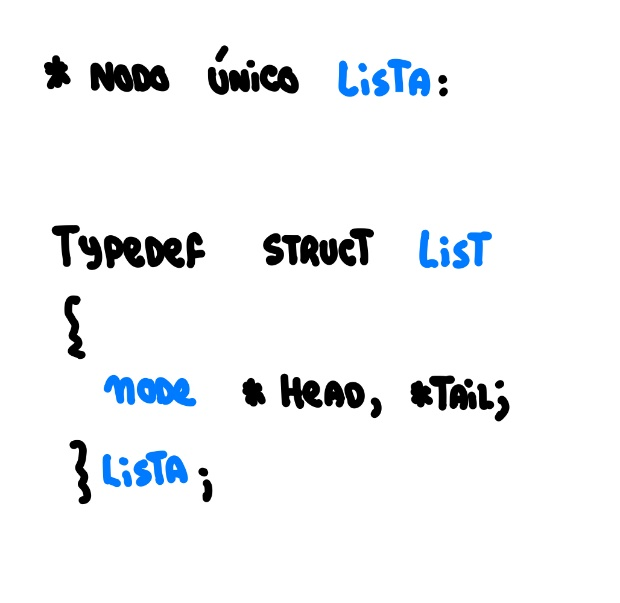 * NODO ÚNICO LISTA:
Typedef STRUCT LIST
{
node * HEAD, *TAIL;
} LISTA;